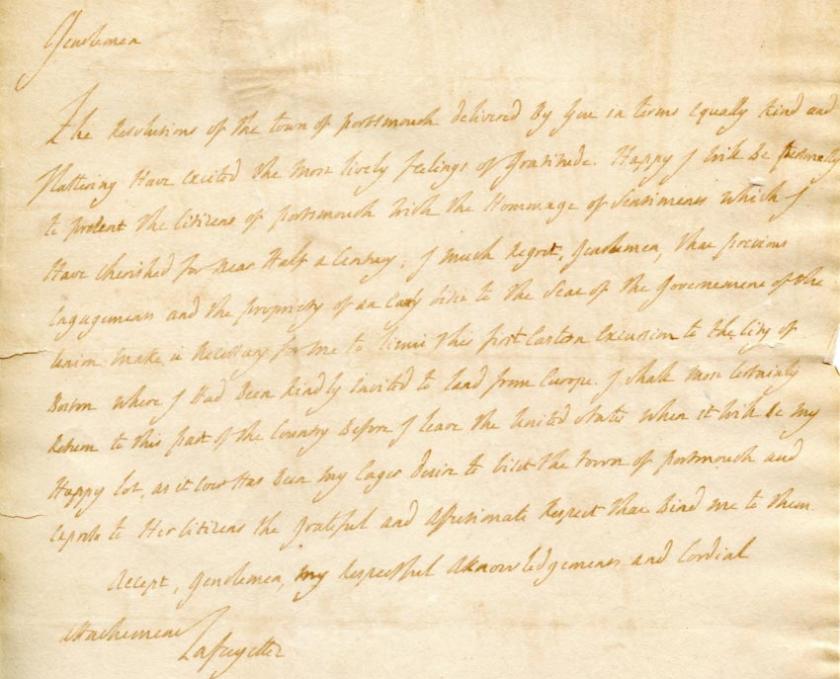 Gentlemen
The Resolutions of the town of portsmouth delivered By You in terms equally Kind and
flattering Have excited the most lively feelings of Gratitude. Happy I will Be personally
to present the Citizens of portsmouth with the Hommage of Sentiments which I
Have cherished for near Half a Century. I much Regret, Gentlemen, that previous
Engagements and the propriety of an Early visit to the Seat of the Government of the
Union make it Necessary for me to limit this first Eastern Excursion to the City of
Boston where I Had Been Kindly invited to land from Europe. I shall most Certainly
Return to this part of the Country Before I leave the United States when it will Be my
Happy lot, as it ever Has Been my Eager Desire to visit the Town of portsmouth and
Express to Her Citizens the grateful and Affectionate Respect that Bind me to them
Accept, Gentlemen, my Respectful Aknowledgements and Cordial
attachement
Lafayette